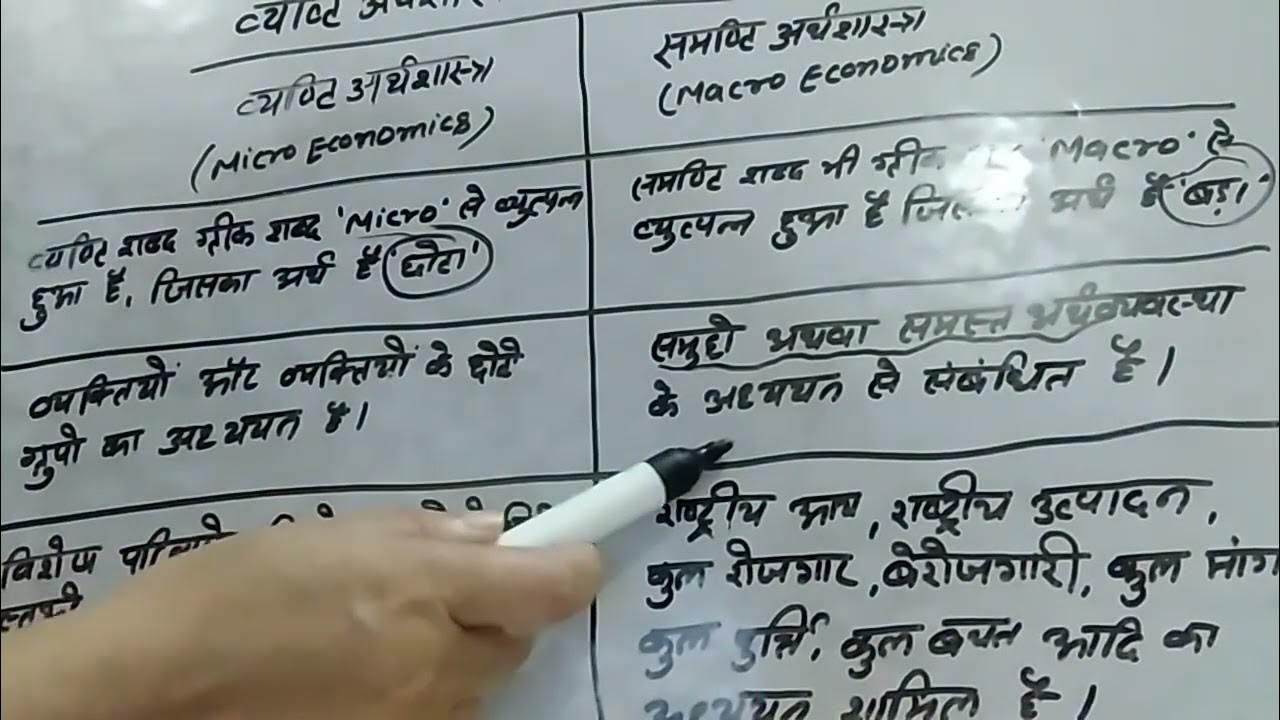 व्यष्टि अर्थशास्
व्यष्टि अर्थशास्त्र
(Micro Economics)
समष्टि अर्थशास्त्र
(Macro Economics)
व्यष्टि शब्द ग्रीक शब्द 'Micro' से व्युत्पन्न
हुआ है, जिसका अर्थ है 'छोटा'
समष्टि शब्द भी ग्रीक 'Macro' से
व्युत्पन्न हुआ है अर्थ है 'बड़ा'
व्यक्तियों और व्यक्तियों के छोटे
ग्रुपो का अध्ययन है।
समुहो अथवा समस्त अर्थव्यवस्था
के अध्ययन से संबंधित है।
विशेष
राष्ट्रीय आय, राष्ट्रीय उत्पादन,
कुल रोजगार, बेरोजगारी, कुल मांग
कुल पुर्ति, कुल बचत आदि का
अध्ययन शामिल है।